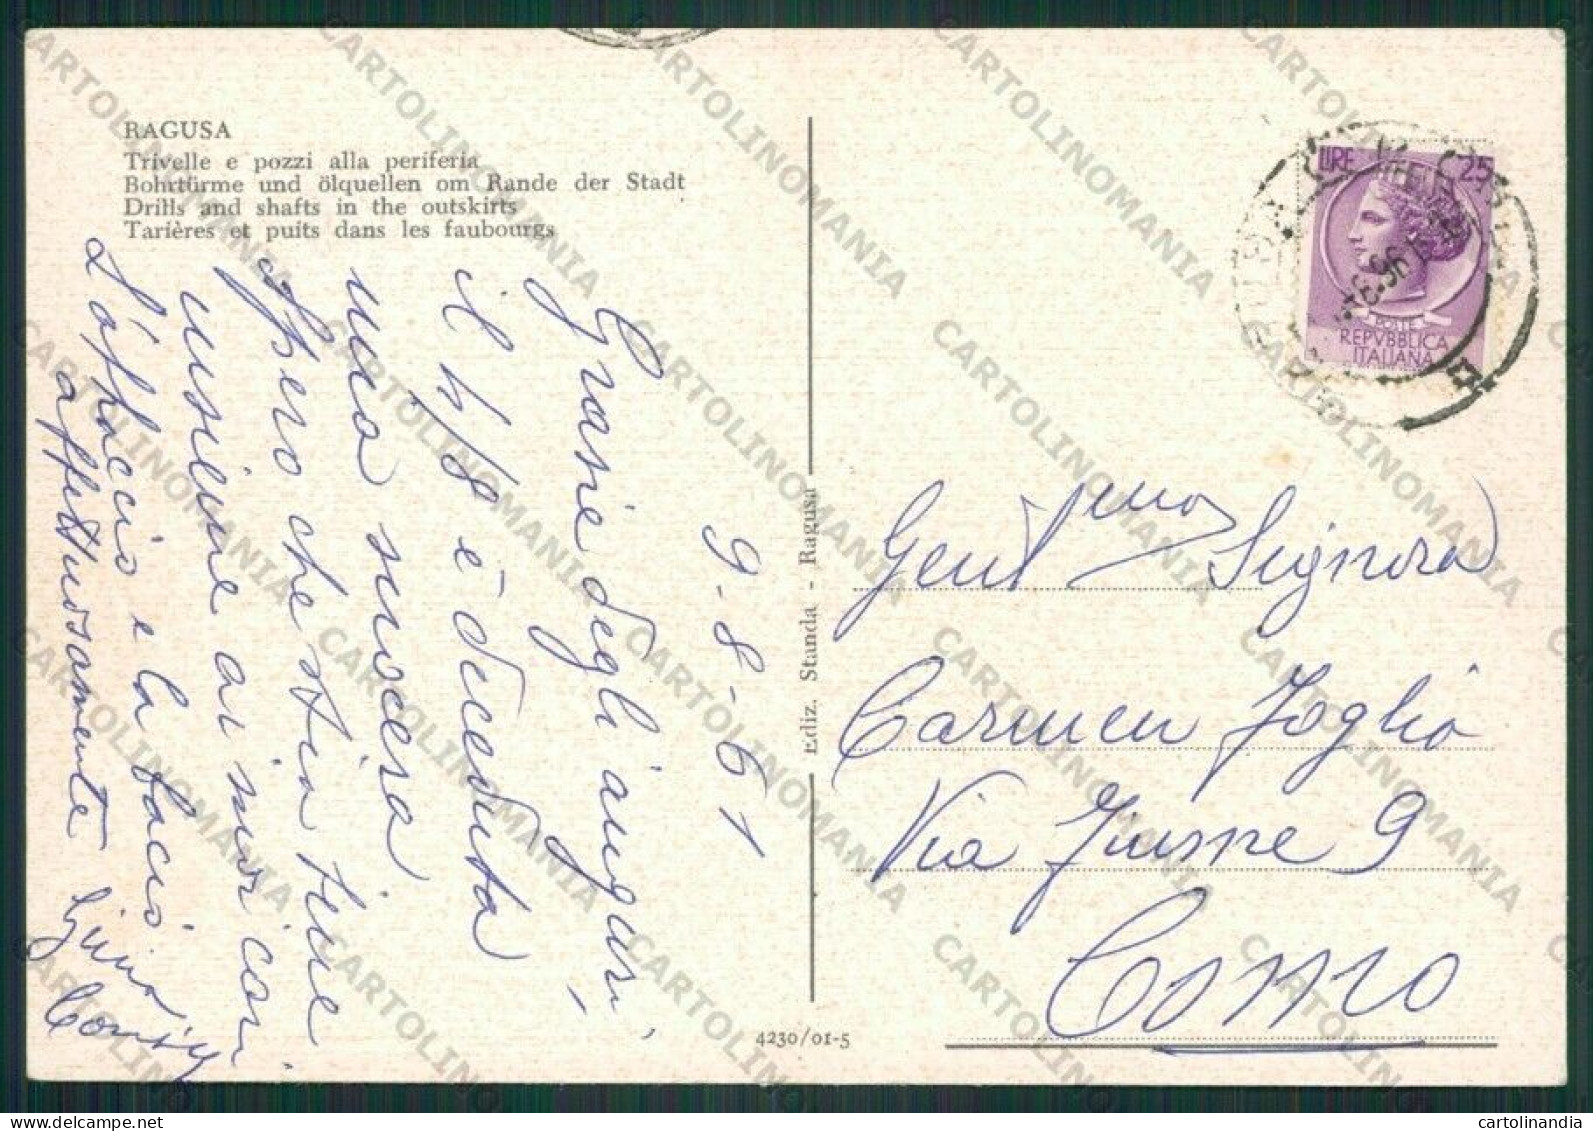 RAGUSA
Trivelle e pozzi alla periferia
Bohrtürme und ölquellen om Rande der Stadt
Drills and shafts in the outskirts
Tarières et puits dans les faubourgs
9-8-61
Grazie degli auguri,
il 4/8 è deceduta
mia suocera
spero che stia bene
insieme ai suoi cari
L'abbraccio e la bacio
affettuosamente
Ediz. Standa - Ragusa
4230/01-5
LIRE 25
POSTE
REPVBBLICA
ITALIANA
Gent.ma Signora
Carmen Foglia
Via Fiume 9
Como
CARTOLINOMANIA
cartolinandia